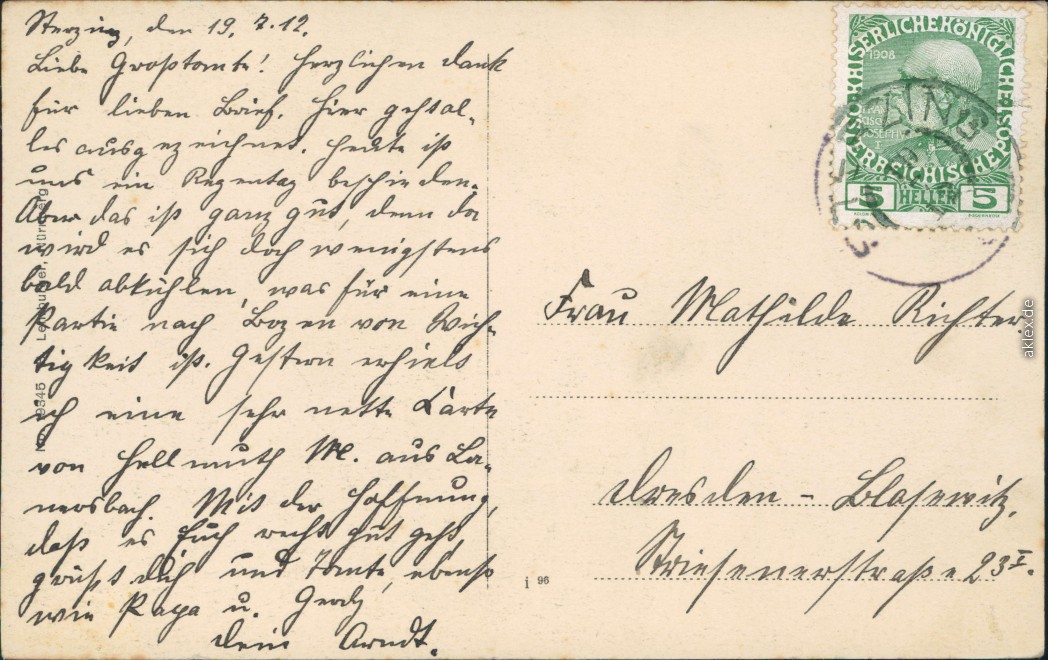 Sterzing, den 19. 7. 12.
Liebe Großtante! Herzlichen Dank
für lieben Brief. Hier geht al-
les ausgezeichnet. Heute ist
uns ein Regentag beschieden.
Aber das ist ganz gut, denn da
wird es sich doch wenigstens
bald abkühlen, was für eine
Partie nach Bozen von Wich-
tigkeit ist. Gestern erhielt
ich eine sehr nette Karte
von Hellmuth M. aus La-
nersbach. Mit der Hoffnung,
daß es Euch recht gut geht,
grüßt Dich und Tante, ebenso
wie Papa u.
Dein Arndt.
Frau Mathilde Richter.
Dresden - Blasewitz.
Striesenerstraße 23 I.
i 96
KAISERLICHE KÖNIGLICHE
1908
ÖSTERREICHISCHE POST
5 HELLER 5
Nürnberg
akpool.de